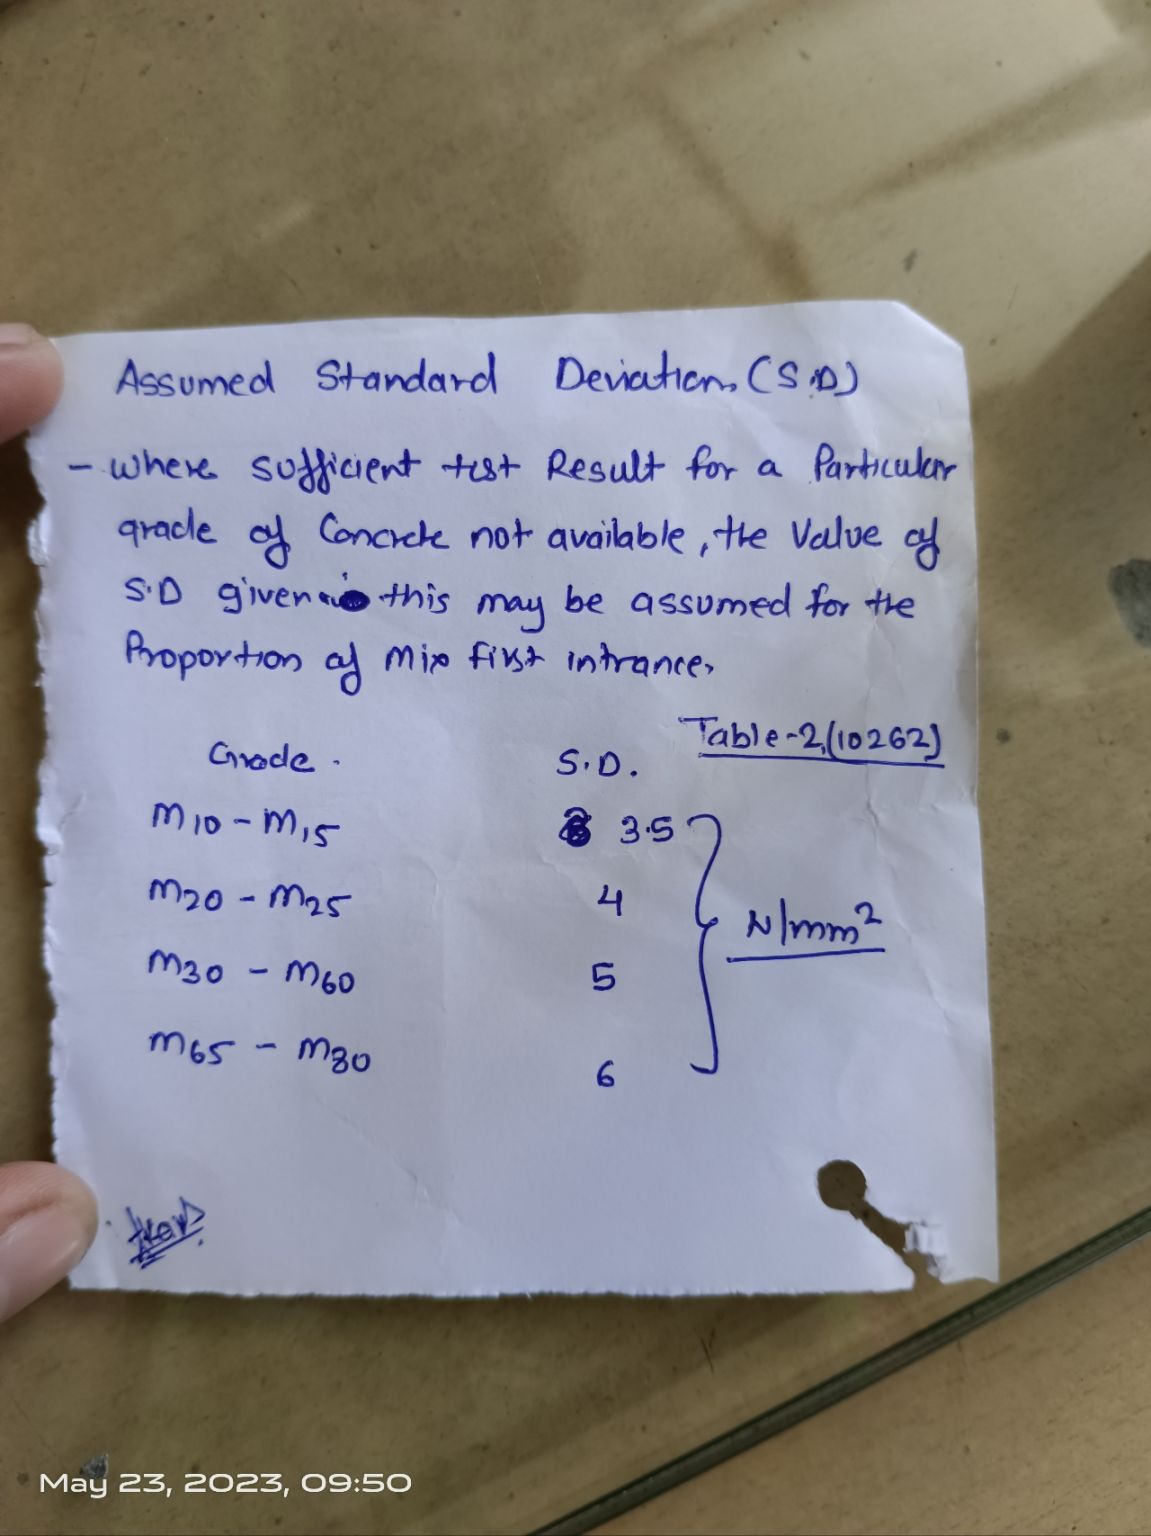 Assumed Standard Deviation (S.D)
- Where sufficient test Result for a Particular
grade of Concrete not available, the Value of
S.D given this may be assumed for the
Proportion of Mix first intrance,
Table-2,(10262)
Grade. S.D.
M10 - M15 3.5
M20 - M25 4
N/mm²
M30 - M60 5
M65 - M80 6
May 23, 2023, 09:50